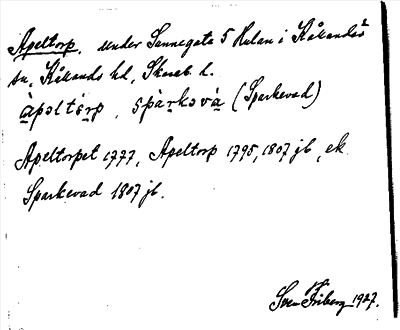 Apeltorp, under Sannegata 5 Hulan i Kållands
sn, Kållands hd, Skarab. l.
àpəltórp, spàrkəvá (Sparkevad)
Apeltorpet 1777, Apeltorp 1795, 1807 jb, ek
Sparkevad 1807 jb.
Sven Friberg 1927.